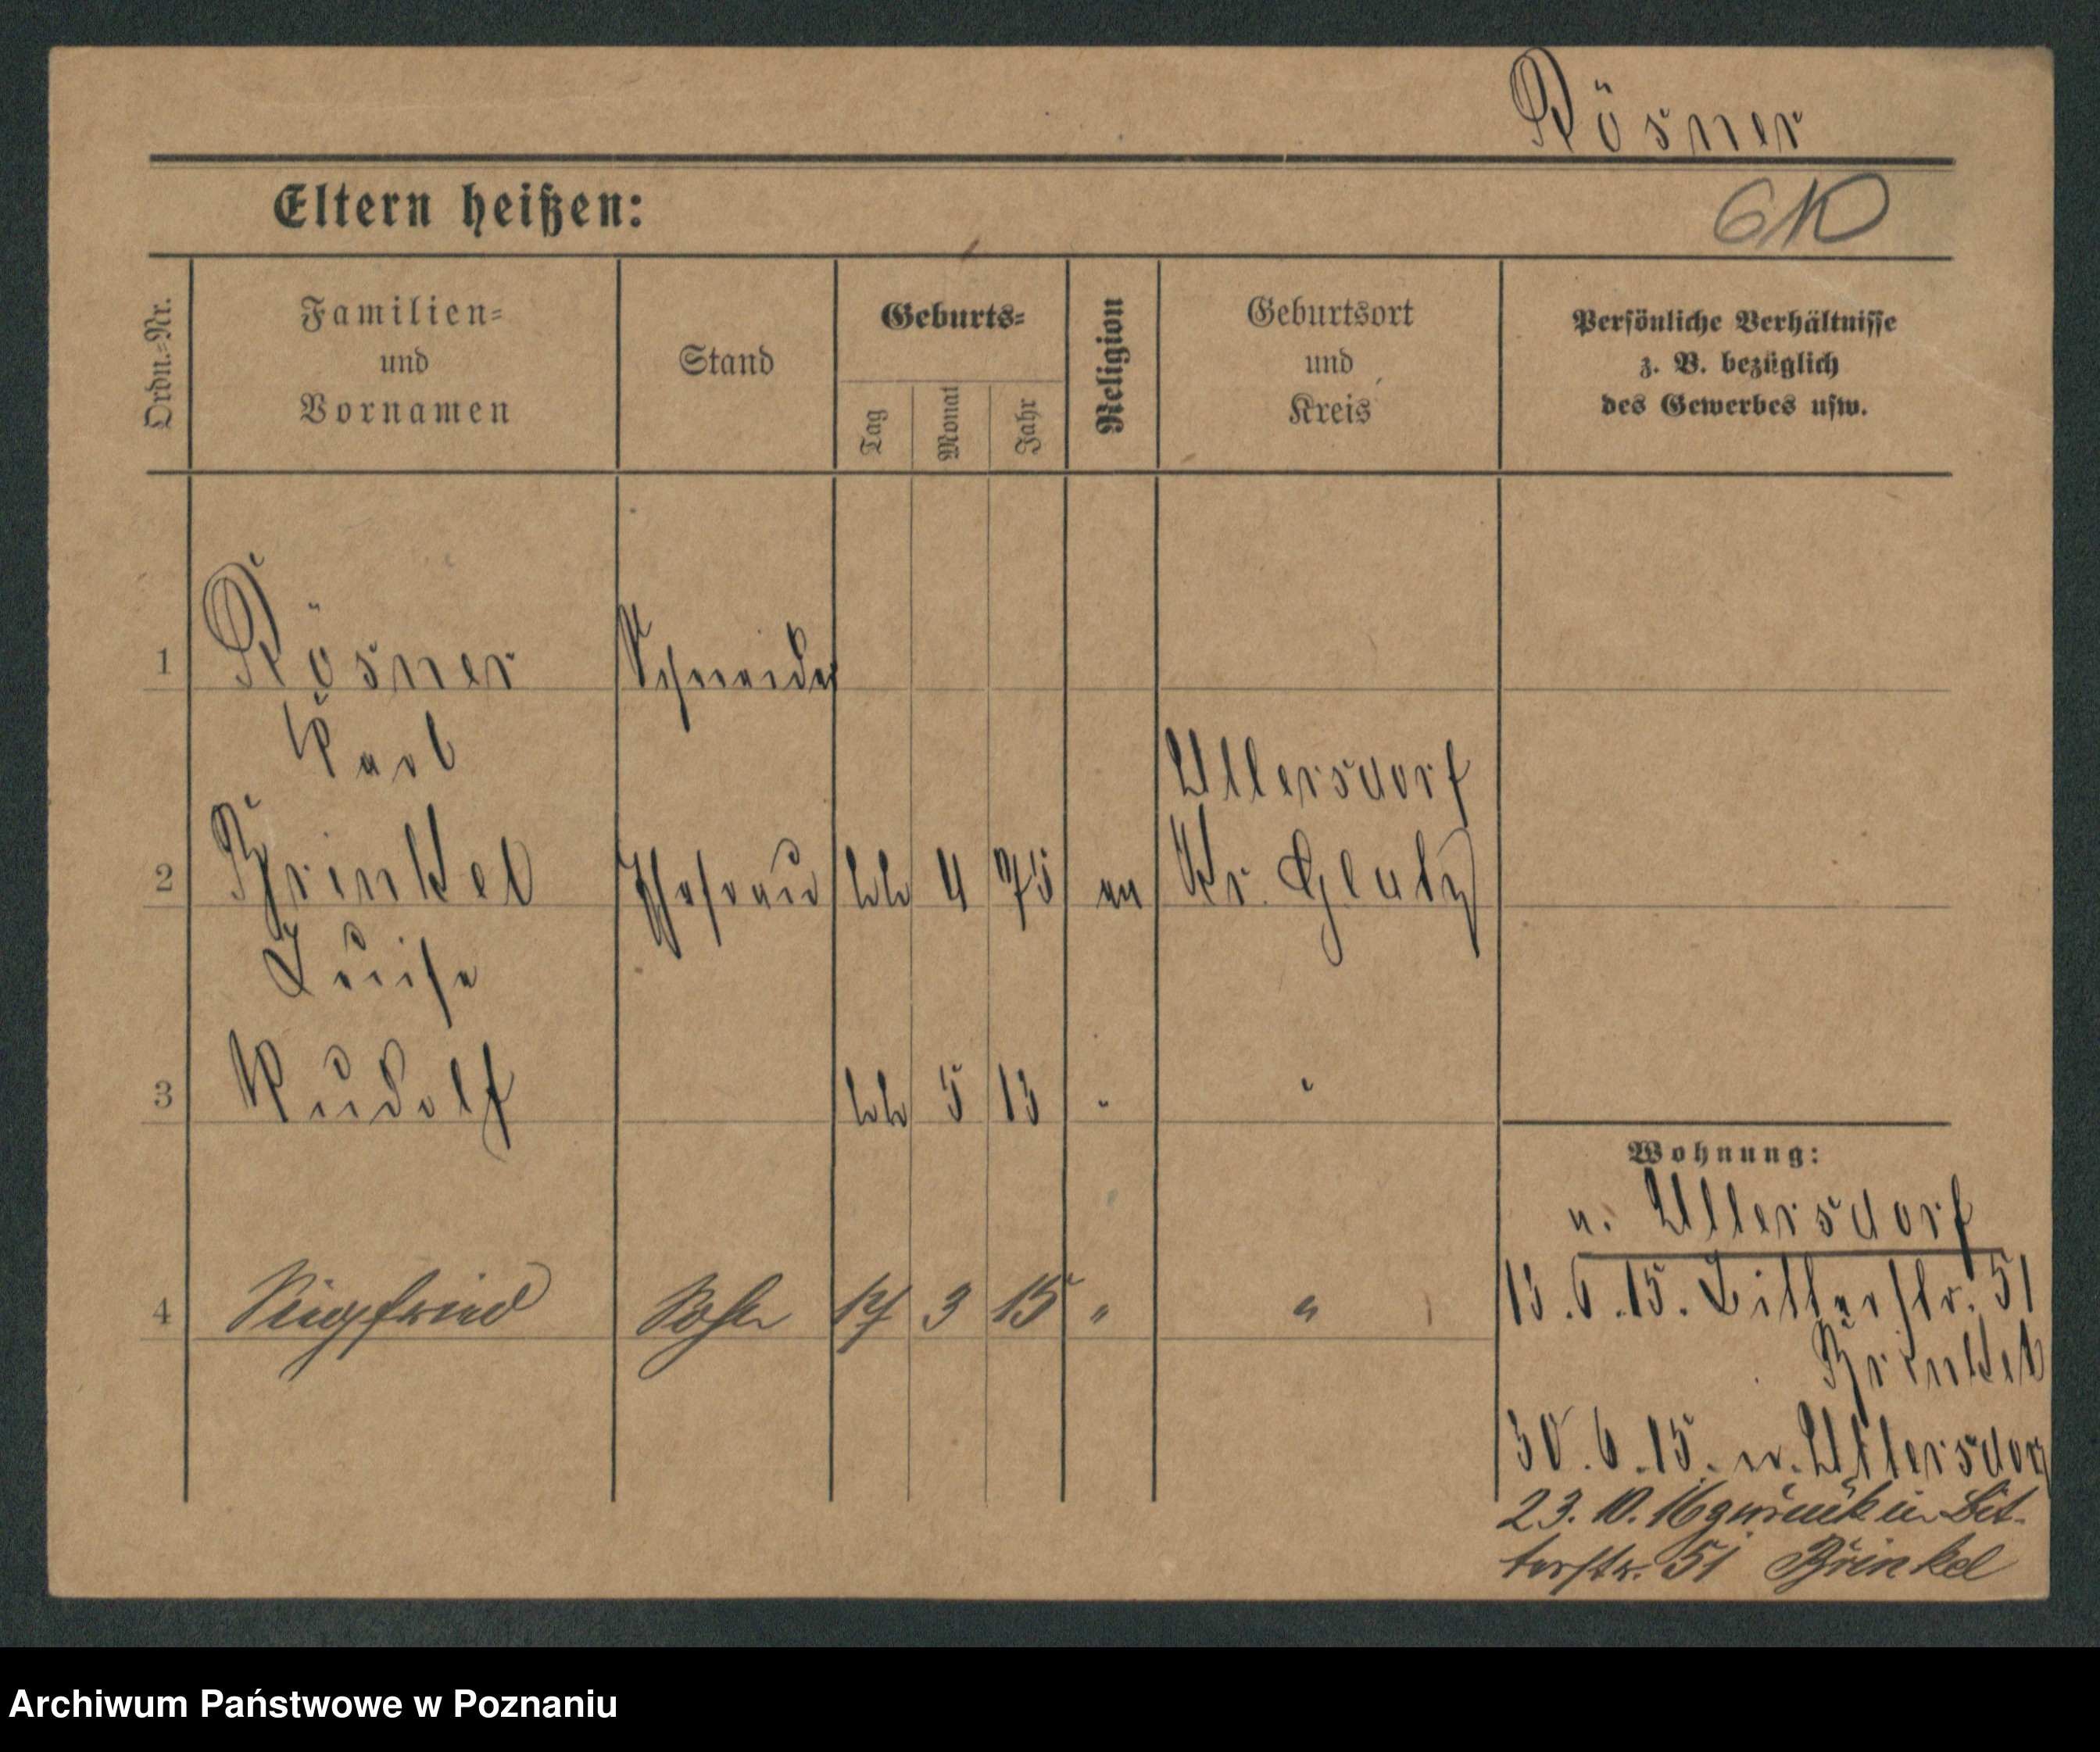 Rösner
Eltern heißen:
610
Ordn.=Nr.
Familien=
und
Vornamen
Stand
Geburts=
Tag
Monat
Jahr
Religion
Geburtsort
und
Kreis
Persönliche Verhältnisse
z. B. bezüglich
des Gewerbes usw.
1 Rösner Schneider
Karl
Ullersdorf
2 Brinkel Ehefrau 22 4 75 ev Kr. Glatz
Luise
3 Rudolf 22 5 13 "
Wohnung:
n. Ullersdorf
4 Siegfried Sohn 17 3 15 " "
13.6.15. Bitterstr. 51
Brinkel
30.6.15. n. Ullersdorf
23.10.16 zurück in Bit-
terstr. 51 Brinkel
Archiwum Państwowe w Poznaniu